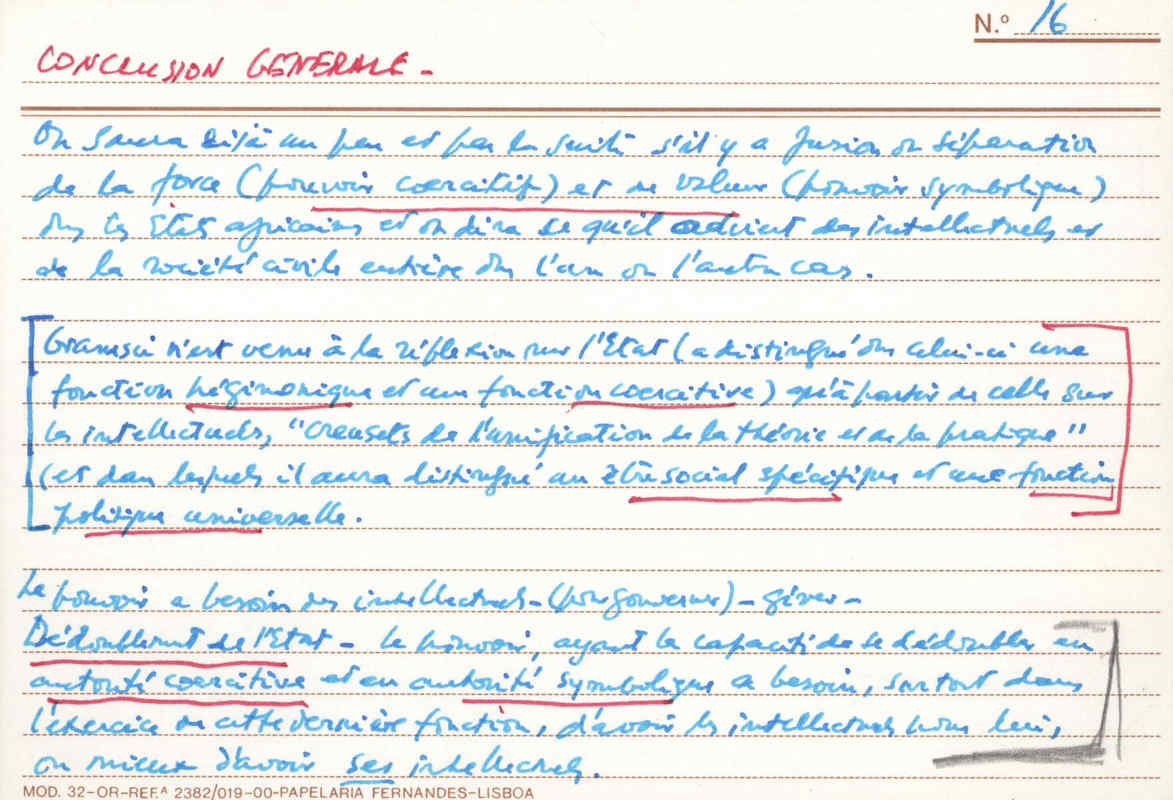 N.º 16
CONCLUSION GENERALE -
On saura déjà un peu et par la suite s'il y a fusion ou séparation
de la force (pouvoir coercitif) et de valeur (pouvoir symbolique)
dns les États africains et on dira ce qu'il advient des intellectuels et
de la société civile entière dns l'un ou l'autre cas.
Gramsci n'est venu à la réflexion sur l'Etat (a distingué dns celui-ci une
fonction hégémonique et une fonction coercitive) qu'à partir de celle sur
les intellectuels, "creusets de l'unification de la théorie et de la pratique"
(et dans lesquels il aura distingué un être social spécifique et une fonction
politique universelle.
Le pouvoir a besoin des intellectuels - (pour gouverner) - gérer -
Dédoublement de l'Etat - le pouvoir, ayant la capacité de se dédoubler en
autorité coercitive et en autorité symbolique a besoin, surtout dans
l'exercice de cette dernière fonction, d'avoir les intellectuels avec lui,
ou mieux d'avoir ses intellectuels.
MOD. 32-OR-REF.ª 2382/019-00-PAPELARIA FERNANDES-LISBOA